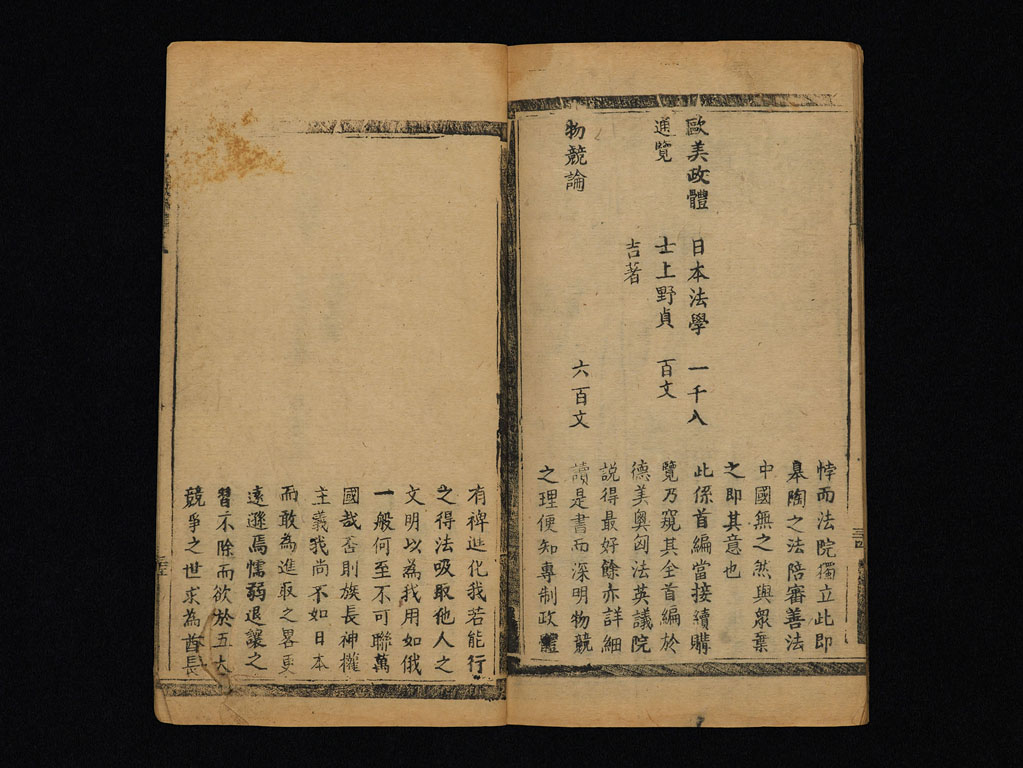 悖而法院獨立此即
皋陶之法陪審善法
中國無之然與眾棄
之即其意也
歐美政體 日本法學 一千八 此係首編當接續購
通覽 士上野貞 百文 覽乃窺其全首編於
吉著 德美奧匈法英議院
說得最好餘亦詳細
物競論 六百文 讀是書而深明物競
之理便知專制政體
有裨進化我若能行
之得法吸取他人之
文明以為我用如俄
一般何至不可聯萬
國哉否則族長神權
主義我尚不如日本
而敢為進取之畧更
遠遜焉懦弱退讓之
習不除而欲於五大
競爭之世求為酋長